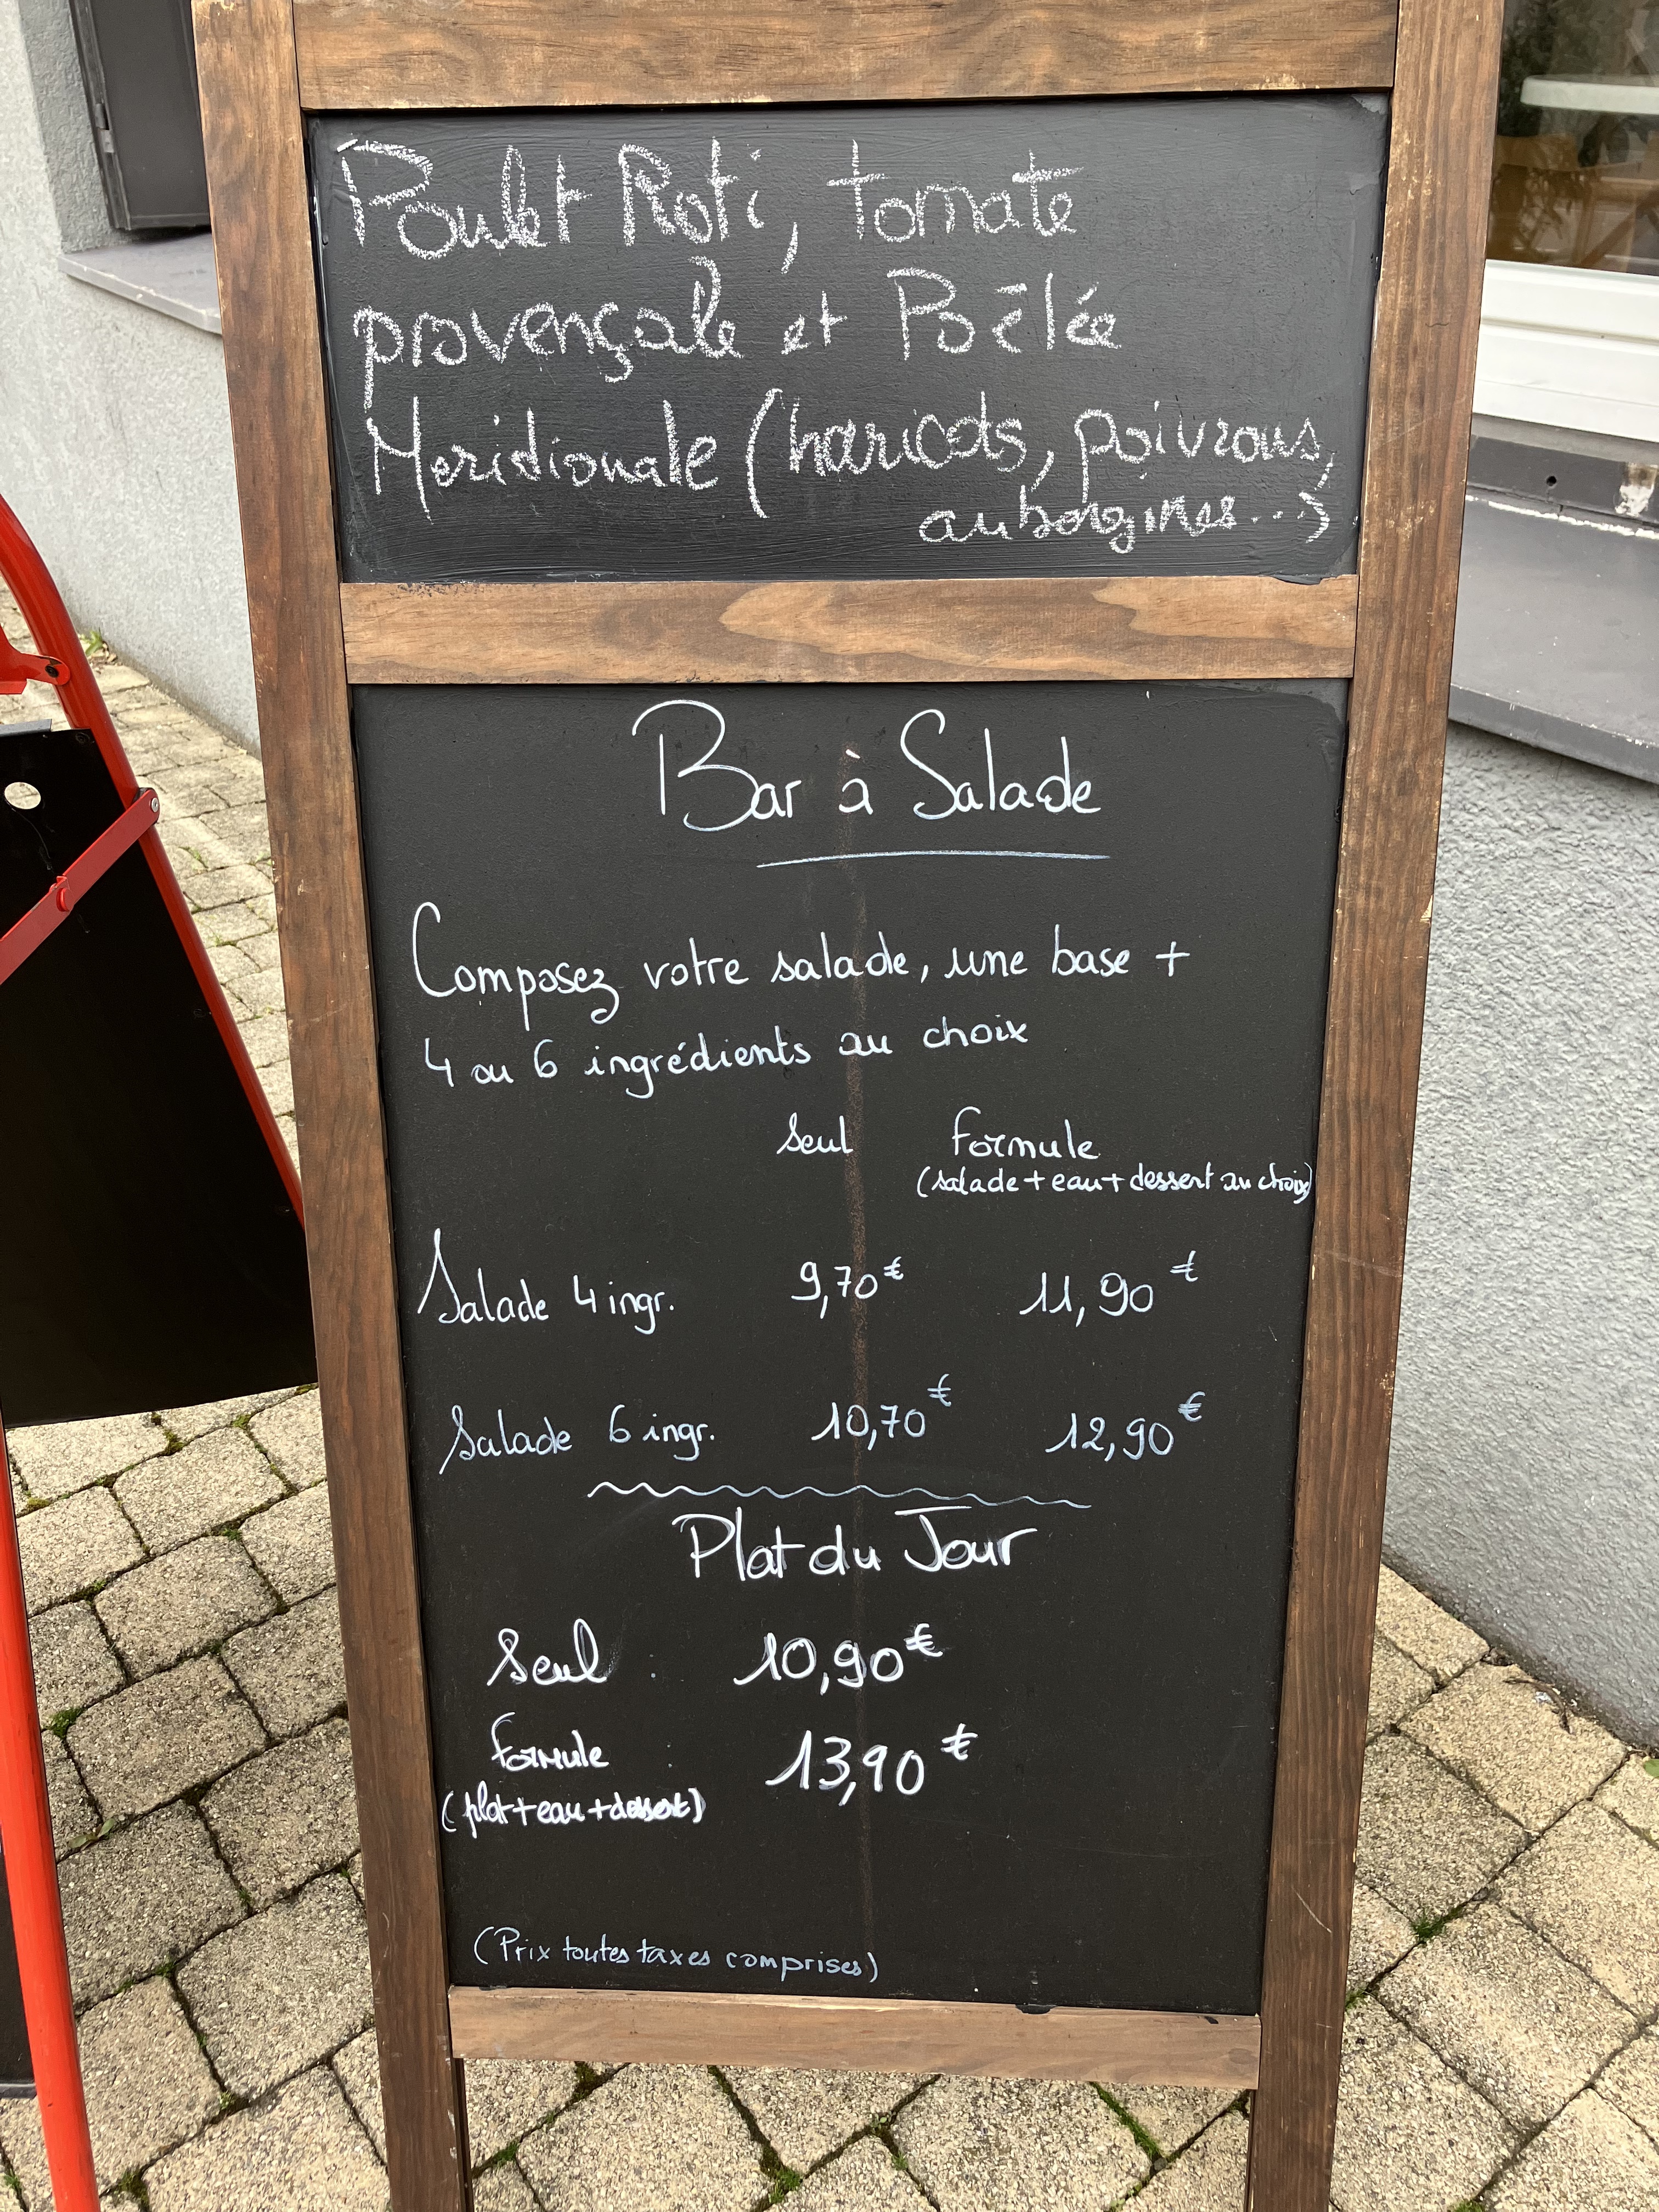 Poulet Roti, tomate
provençale et Poêlée
Meridionale (haricots, poivrons,
aubergines...)
Bar à Salade
Composez votre salade, une base +
4 ou 6 ingrédients au choix
seul formule
(salade + eau + dessert au choix)
Salade 4 ingr. 9,70€ 11,90€
Salade 6 ingr. 10,70€ 12,90€
Plat du Jour
Seul : 10,90€
formule : 13,90€
(plat+eau+dessert)
(Prix toutes taxes comprises)